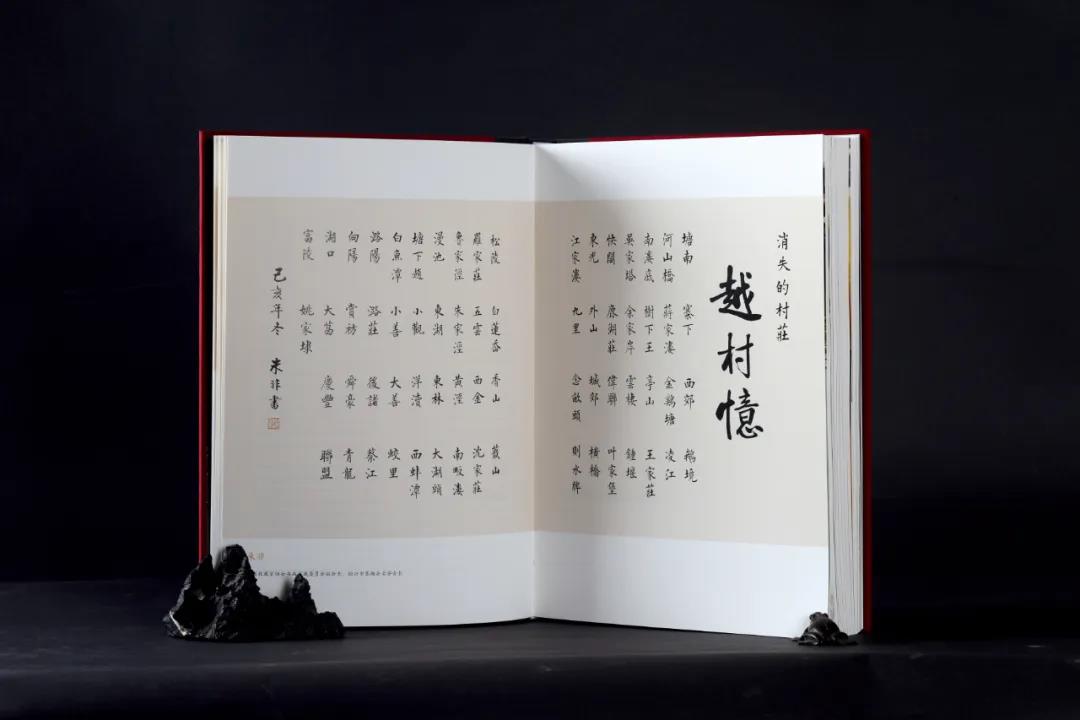 消失的村莊
越村憶
塘南 寨下 西郊 鵝境
河山橋 蔣家漊 金鷄塘 凌江
南漊底 樹下王 亭山 王家莊
吳家塔 余家岸 雲棲 鍾堰
快閣 鹿湖莊 偉聯 叶家堡
東光 外山 城郊 橫橋
江家漊 九里 念畝頭 則水牌
松陵 白蓮岙 香山 蕺山
羅家莊 五雲 西金 沈家莊
魯家涇 朱家涇 黃涇 南畈漊
漫池 東湖 東林 大湖頭
塘下趙 小觀 洋瀆 西蚌潭
白魚潭 小善 大善 蛟里
潞陽 潞莊 後諸 蔡江
向陽 賞祊 舜豪 青龍
湖口 大葛 慶豐 聯盟
富陵 姚家埭
己亥年冬 朱非書